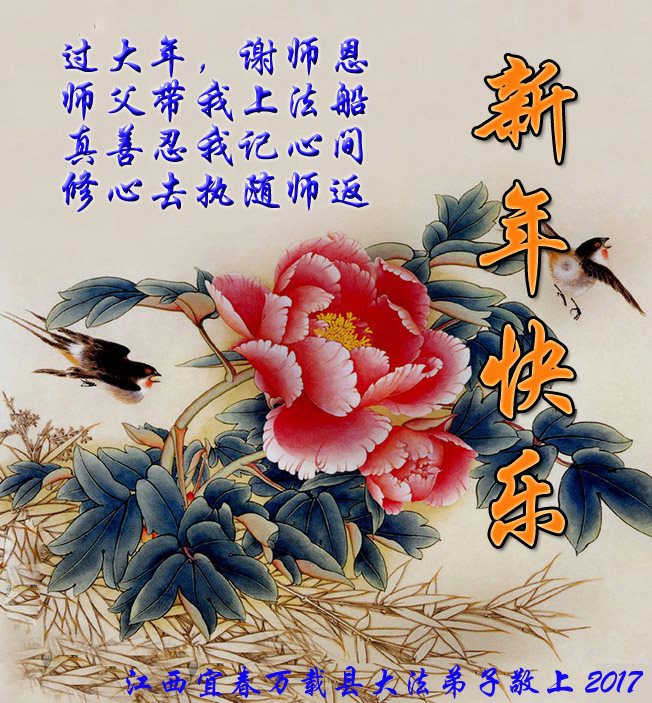 过大年，谢师恩
师父带我上法船
真善忍我记心间
修心去执随师返
新年快乐
江西宜春万载县大法弟子敬上 2017